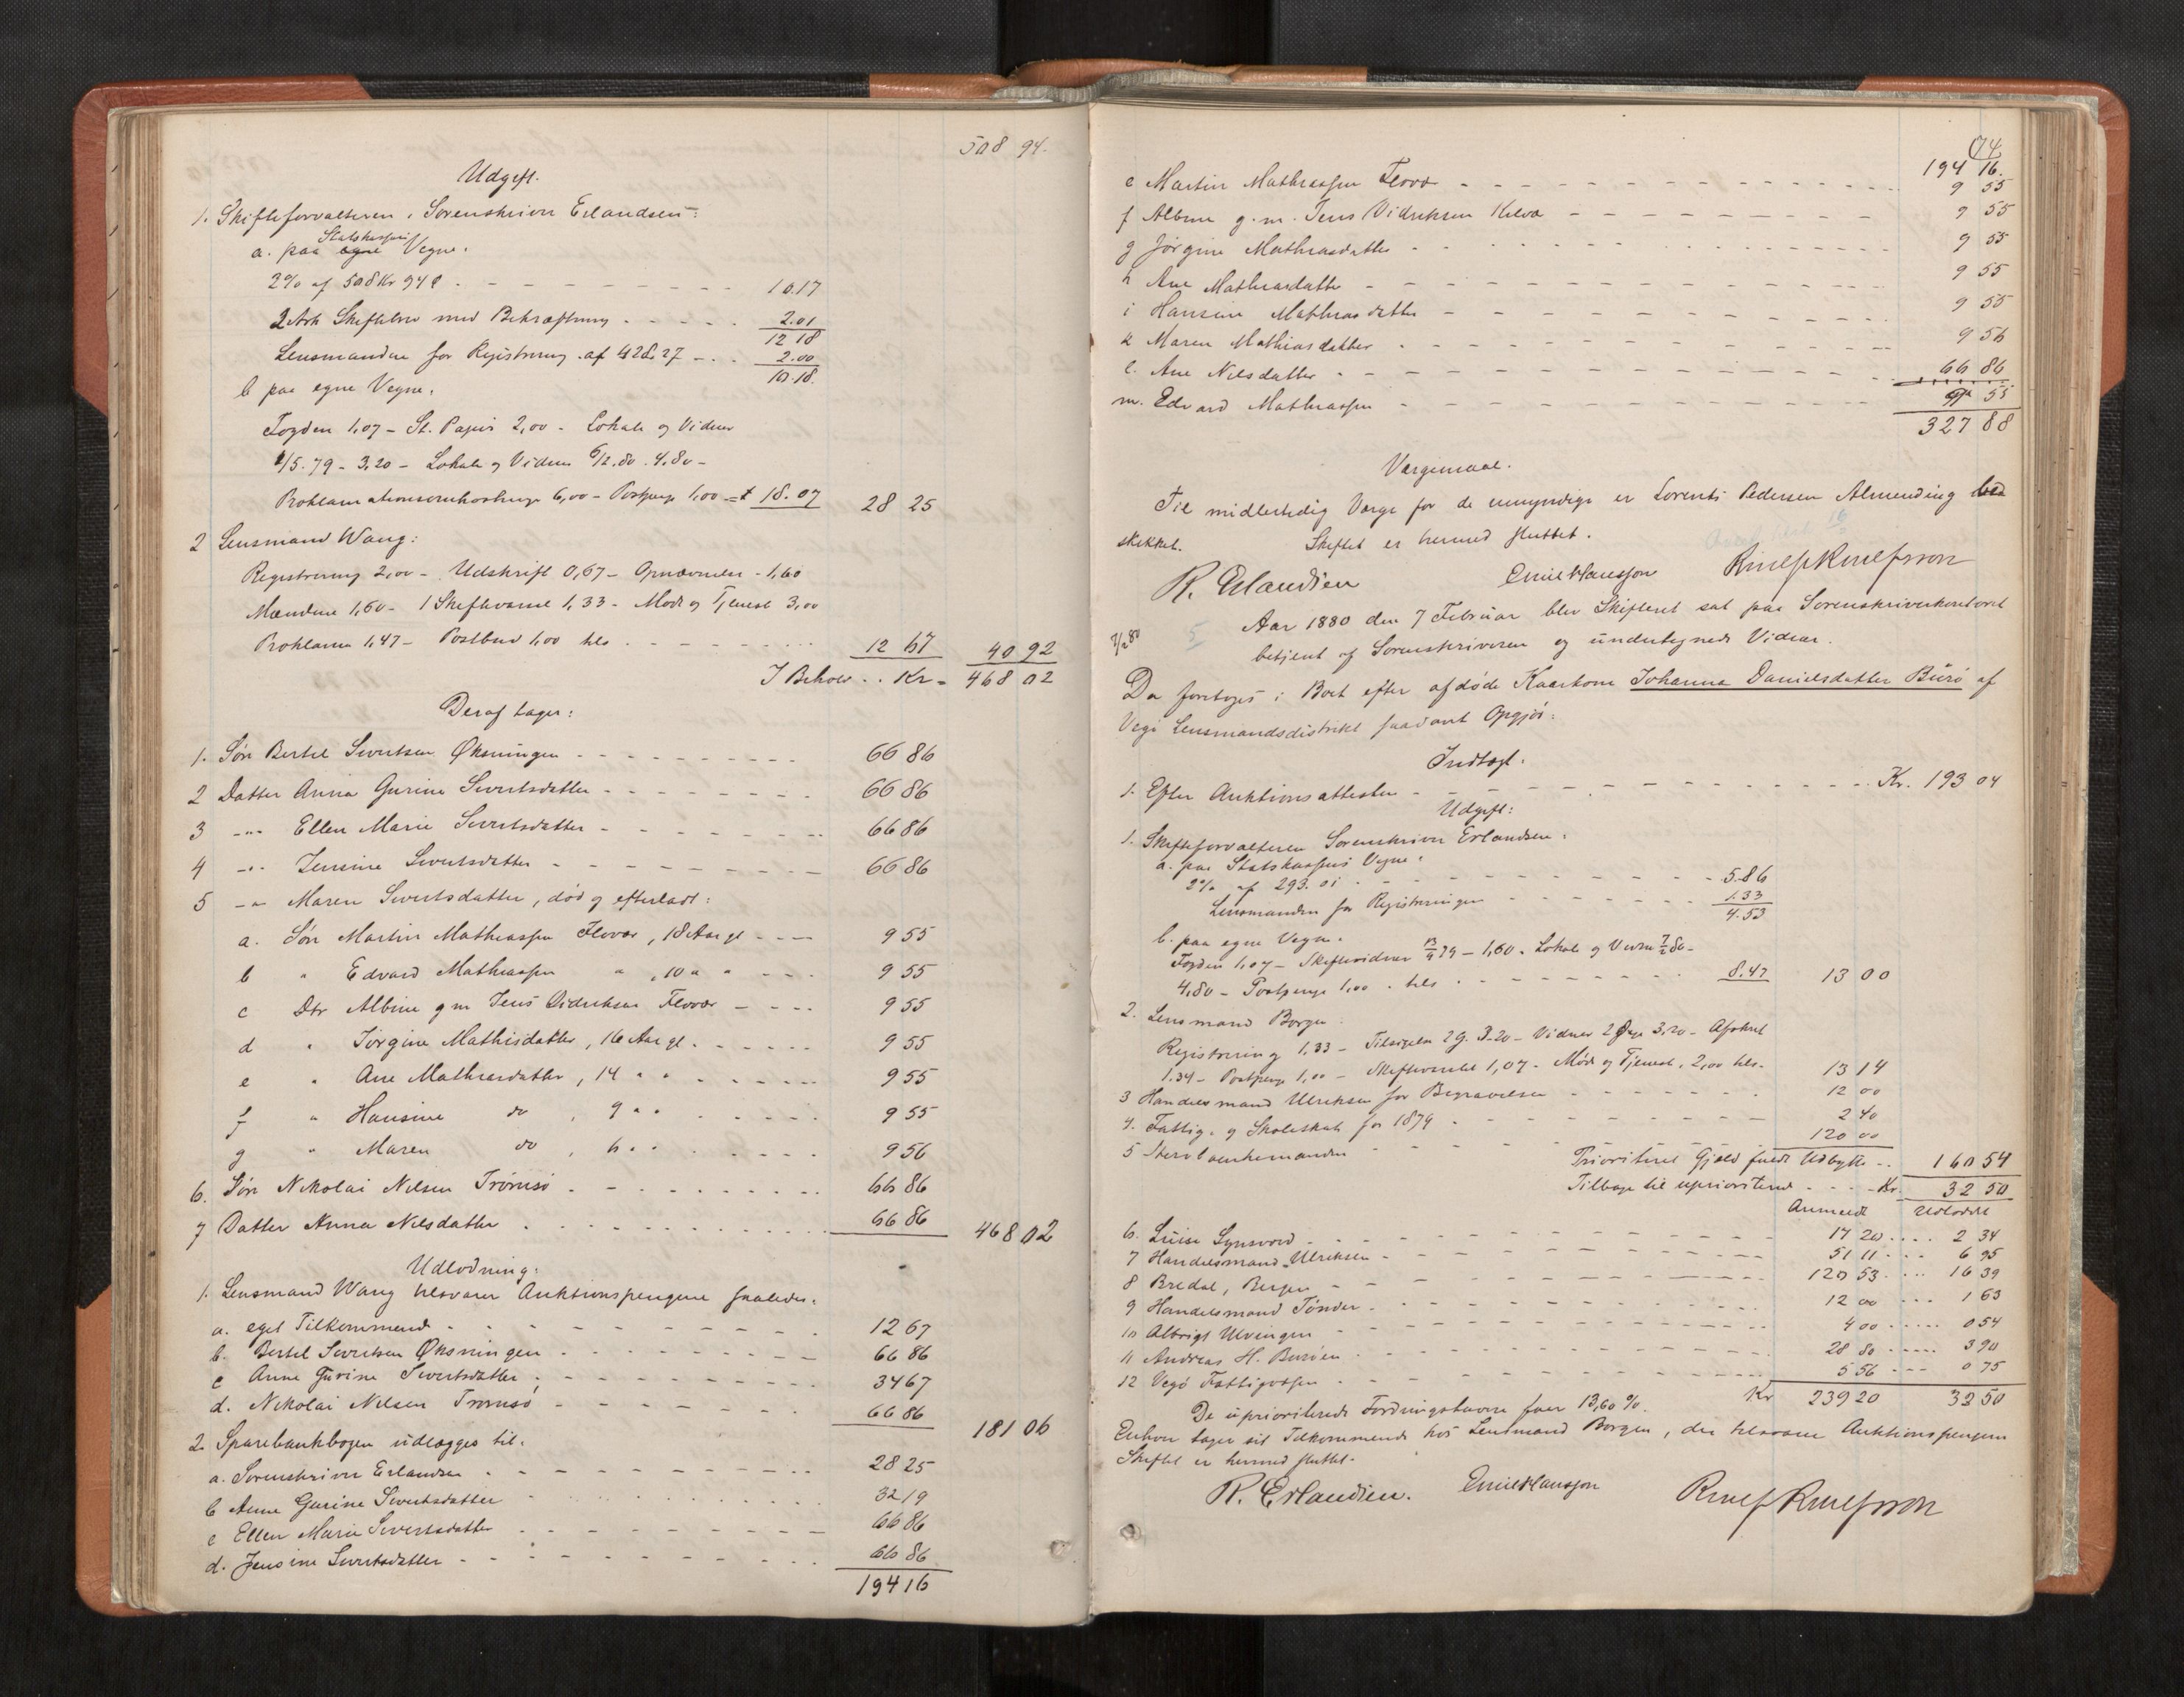 508 94.
Udgift.
1. Skifteforvalteren, Sorenskriver Erlandsen:
a. paa egne Statskassens Vegne.
2% af 508 Kr 94 - - - - 10.17
2 Ark Skiftebrev med Bekræftning - - - 2.01
12 18
Lensmanden for Registrering af 428.27 - - 2.00
10.18.
b paa egne Vegne.
Fogden 1,07 - St. Papir 2,00 - Lokale og Vidner
/5.79 - 3,20 - Lokale og Vidner 6/2.80. 4.80 -
Proklamationsomkostninger 6,00 - Postpenge 1,00 = 18.07 28 25
2 Lensmand Wang:
Registrering 2,00 - Udskrift 0,67 - Opnævnelse - 1,60
Mændene 1,60 - 1 Skiftevarsel 1,33 - Møde og Tjeneste 3,00
Proklama 1,47 - Postbud 1,00 tils - - - 12 67 40 92
I Behold .. Kr = 468 02
Deraf tager:
1. Søn Bertel Sivertsen Øksningen - - - 66 86
2 Datter Anna Gurine Sivertsdatter - - - 66 86
3 -"- Ellen Marie Sivertsdatter - - - 66 86
4 -"- Jensine Sivertsdatter - - - 66 86
5 -"- Maren Sivertsdatter, død og efterladt:
a. Søn Martin Mathiassen Flovær, 18 Aar gl - - - 9 55
b " Edvard Mathiassen " , 10 " " - - - 9 55
c Dtr Albine g m Jens Didriksen Flovær - - - 9 55
d " Jørgine Mathisdatter, 16 Aar gl. - - - 9 55
e " Ane Mathiasdatter, 14 " " - - - 9 55
f " Hansine do , 9 " " - - - 9 55
g " Maren do , 6 " " - - - 9 56
6. Søn Nikolai Nilsen Tromsø - - - 66 86
7 Datter Anna Nilsdatter - - - 66 86 468 02
Udlodning:
1. Lensmand Wang tilsvarer Auktionspengene saaledes:
a. eget Tilkommende - - - 12 67
b. Bertel Sivertsen Øksningen - - - 66 86
c Anne Gurine Sivertsdatter - - - 34 67
d. Nikolai Nilsen Tromsø - - - 66 86 181 06
2. Sparebankbogen udlægges til:
a. Sorenskriver Erlandsen - - - 28 25
b Anne Gurine Sivertsdatter - - - 32 19
c Ellen Marie Sivertsdatter - - - 66 86
d. Jensine Sivertsdatter - - - 66 86
194 16
74
194 16.
e Martin Mathiassen Flovær - - - 9 55
f Albine g. m. Jens Didriksen Kilvær - - - 9 55
g Jørgine Mathiasdatter - - - 9 55
h Ane Mathiasdatter - - - 9 55
i Hansine Mathiasdatter - - - 9 55
k Maren Mathiasdatter - - - 9 56
l. Ane Nilsdatter - - - 66 86
m. Edvard Mathiassen - - - 9 55
327 88
Værgemaal.
Til midlertidig Værge for de umyndige er Lorents Pedersen Almending be
skikket. Skiftet er hermed sluttet.
R. Erlandsen Emil Hansson Rmelf Rmelfsson
7/2 80 5 Aar 1880 den 7 Februar blev Skifteret sat paa Sorenskriverkontoret
betjent af Sorenskriveren og undertegnede Vidner.
Da foretoges i Boet efter afdøde Kaarkone Johanna Danielsdatter Burø af
Vegø Lensmandsdistrikt saadant Opgjør:
Indtægt.
1. Efter Auktionsattesten - - - Kr. 193 04
Udgift:
1. Skifteforvalteren Sorenskriver Erlandsen:
a. paa Statskassens Vegne:
2% af 293.01 - - - 5.86
Lensmanden for Registreringen - - - 1.33
4.53
b. paa egne Vegne.
Fogden 1,07 - Skiftevidner 13/9 79 - 1,60. Lokale og Vidner 7/2 80 -
4,80 - Postpenge 1,00. tils - - - 8.47 13 00
2. Lensmand Borgen:
Registrering 1,33 - Tilsigelse 2 G. 3.20 - Vidner 2 Dage 3,20 - Afskrift
1.34 - Postpenge 1,00 - Skiftevarsel 1,07 - Møde og Tjeneste. 2,00 tils. 13 14
3 Handelsmand Ulriksen for Begravelsen - - - 12 00
4. Fattig- og Skoleskat for 1879 - - - 2 40
5 - - - 120 00
Prioriteret Gjæld fuldt Udbytte .. 160 54
Tilbage til uprioriterede - - - Kr. 32 50
Anmeldt Udloddet
6. Luise - - - 17 20 .... 2 34
7 Handelsmand Ulriksen - - - 51 11 ... 6 95
8 Bredal, Bergen - - - 120 53 ... 16 39
9 Handelsmand Tønder - - - 12 00 ... 1 63
10 Albrigt Ulvingen - - - 4 00 .... 0 54
11 Andreas H. Burøen - - - 28 80 .... 3 90
12 Vegø Fattigvæsen - - - 5 56 ... 0 75
De uprioriterede Fordringshavere faar 13,60 %. Kr 239 20 32 50
Enhver tager sit Tilkommende hos Lensmand Borgen, der tilsvarer Auktionspengene
Skiftet er hermed sluttet.
R. Erlandsen. Emil Hansson Rmelf Rmelfsson